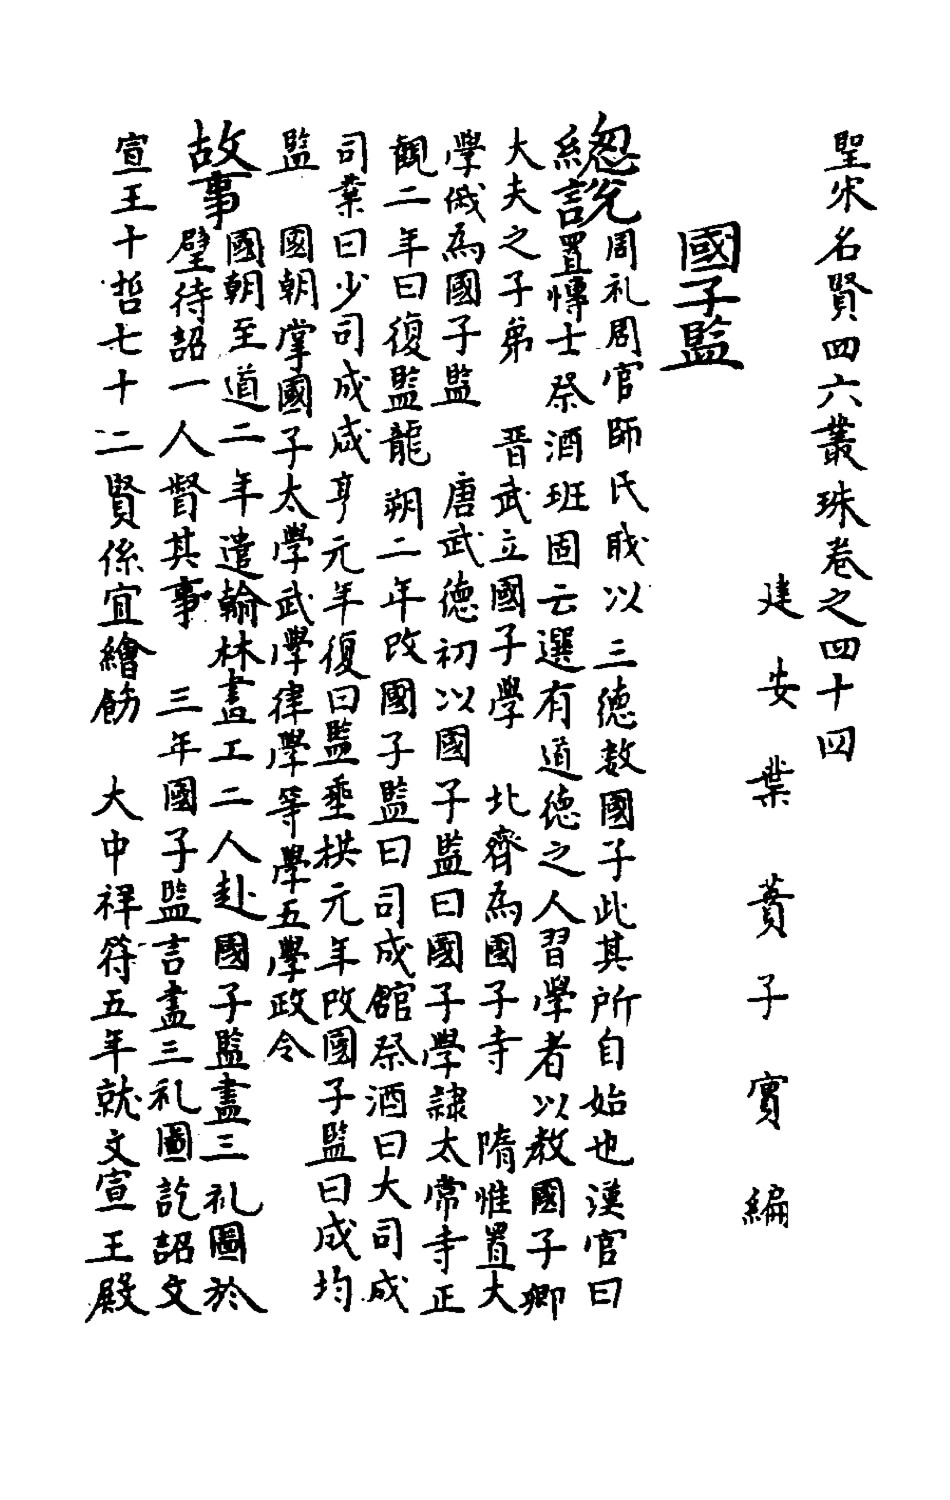 聖宋名賢四六叢珠卷之四十四
建安葉蕡子實編
國子監
總說周礼周官師氏戝以三德教國子此其所自始也漢官曰
置愽士祭酒班固云選有道德之人習學者以教國子卿
大夫之子弟　晉武立國子學　北齊為國子寺　隋惟置大
學俄為國子監　唐武德初以國子監曰國子學隷太常寺正
觀二年曰復監龍朔二年改國子監曰司成館祭酒曰大司成
司業曰少司成咸亨元年復曰監垂拱元年改國子監曰成均
監　國朝掌國子太學武學律學等學五學政令
故事國朝至道二年遣翰林畫工二人赴國子監畫三礼圖於
壁待詔一人督其事　三年國子監言畫三礼圖訖詔文
宣王十哲七十二賢係宜繪飭　大中祥符五年就文宣王殿